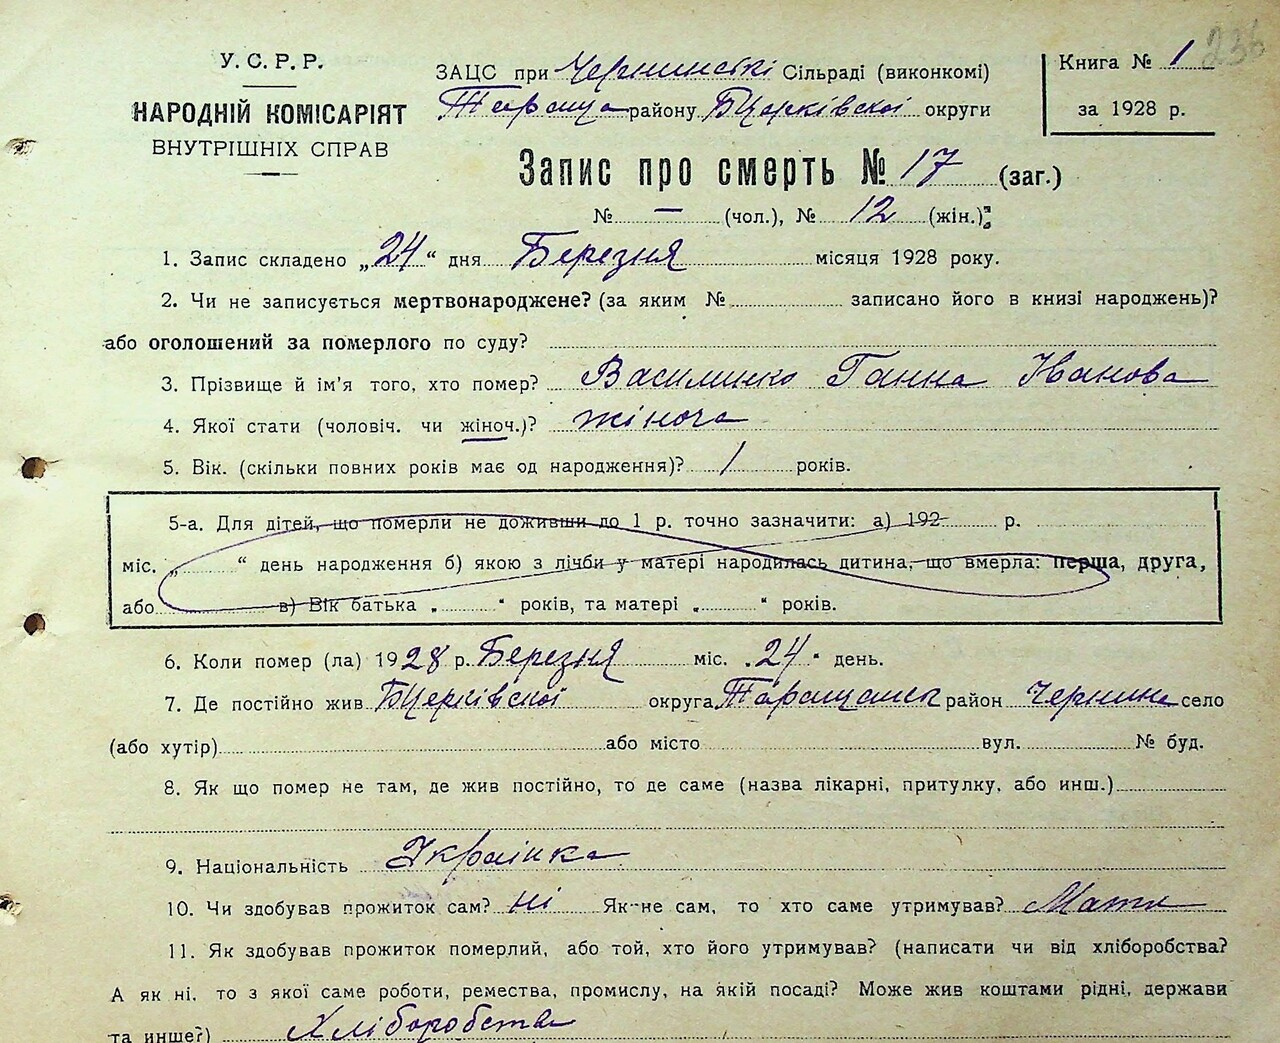 236
У. С. Р. Р.
НАРОДНІЙ КОМІСАРІЯТ
ВНУТРІШНІХ СПРАВ
ЗАЦС при Чернинській Сільраді (виконкомі)
Тараща району БЦерківської округи
Книга № 1
за 1928 р.
Запис про смерть № 17 (заг.)
№ — (чол.), № 12 (жін.)
1. Запис складено „24“ дня Березня місяця 1928 року.
2. Чи не записується мертвонароджене? (за яким № записано його в книзі народжень)?
або оголошений за померлого по суду?
3. Прізвище й ім'я того, хто помер? Василинко Ганна Іванова
4. Якої стати (чоловіч. чи жіноч.)? жіноча
5. Вік. (скільки повних років має од народження)? 1 років.
5-а. Для дітей, що померли не доживши до 1 р. точно зазначити: а) 192 р.
міс. „ “ день народження б) якою з лічби у матері народилась дитина, що вмерла: перша, друга,
або в) Вік батька „ “ років, та матері „ “ років.
6. Коли помер (ла) 1928 р. Березня міс. „24“ день.
7. Де постійно жив БЦерківської округа Таращанськ район Чернине село
(або хутір) або місто вул. № буд.
8. Як що помер не там, де жив постійно, то де саме (назва лікарні, притулку, або инш.)
9. Національність Українка
10. Чи здобував прожиток сам? ні Як не сам, то хто саме утримував? Мати
11. Як здобував прожиток померлий, або той, хто його утримував? (написати чи від хліборобства?
А як ні, то з якої саме роботи, ремества, промислу, на якій посаді? Може жив коштами рідні, держави
та инше?) Хліборобства